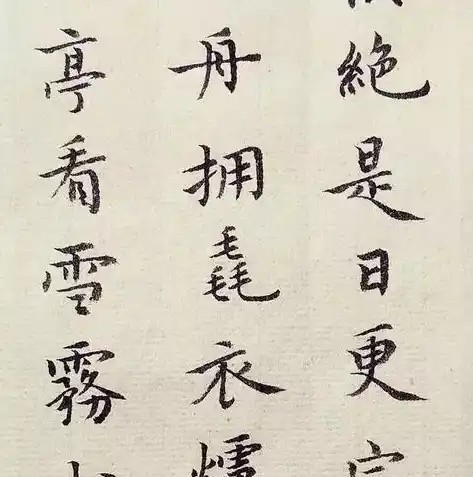 絕是日更
舟拥毳衣
亭看雪霧